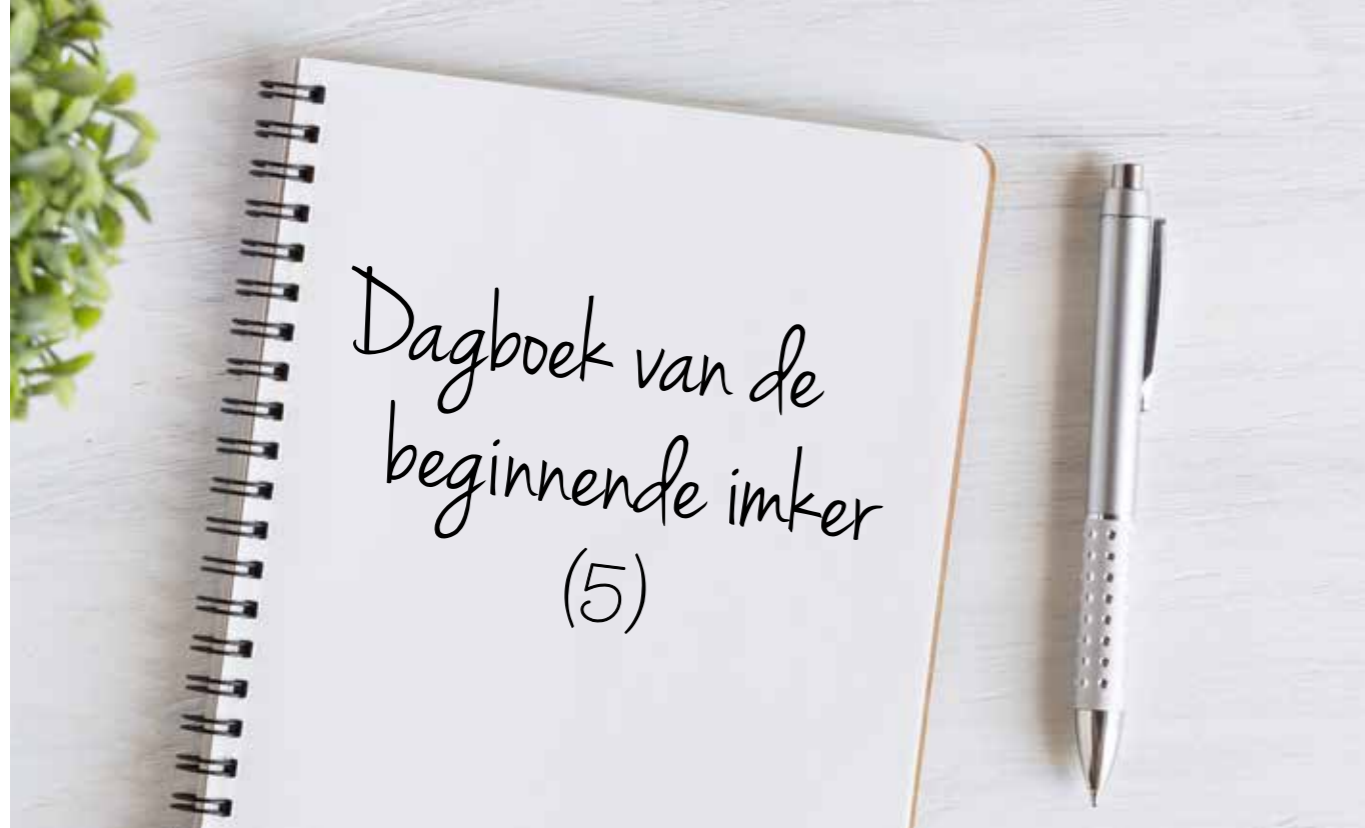 Dagboek van de
beginnende imker
(5)